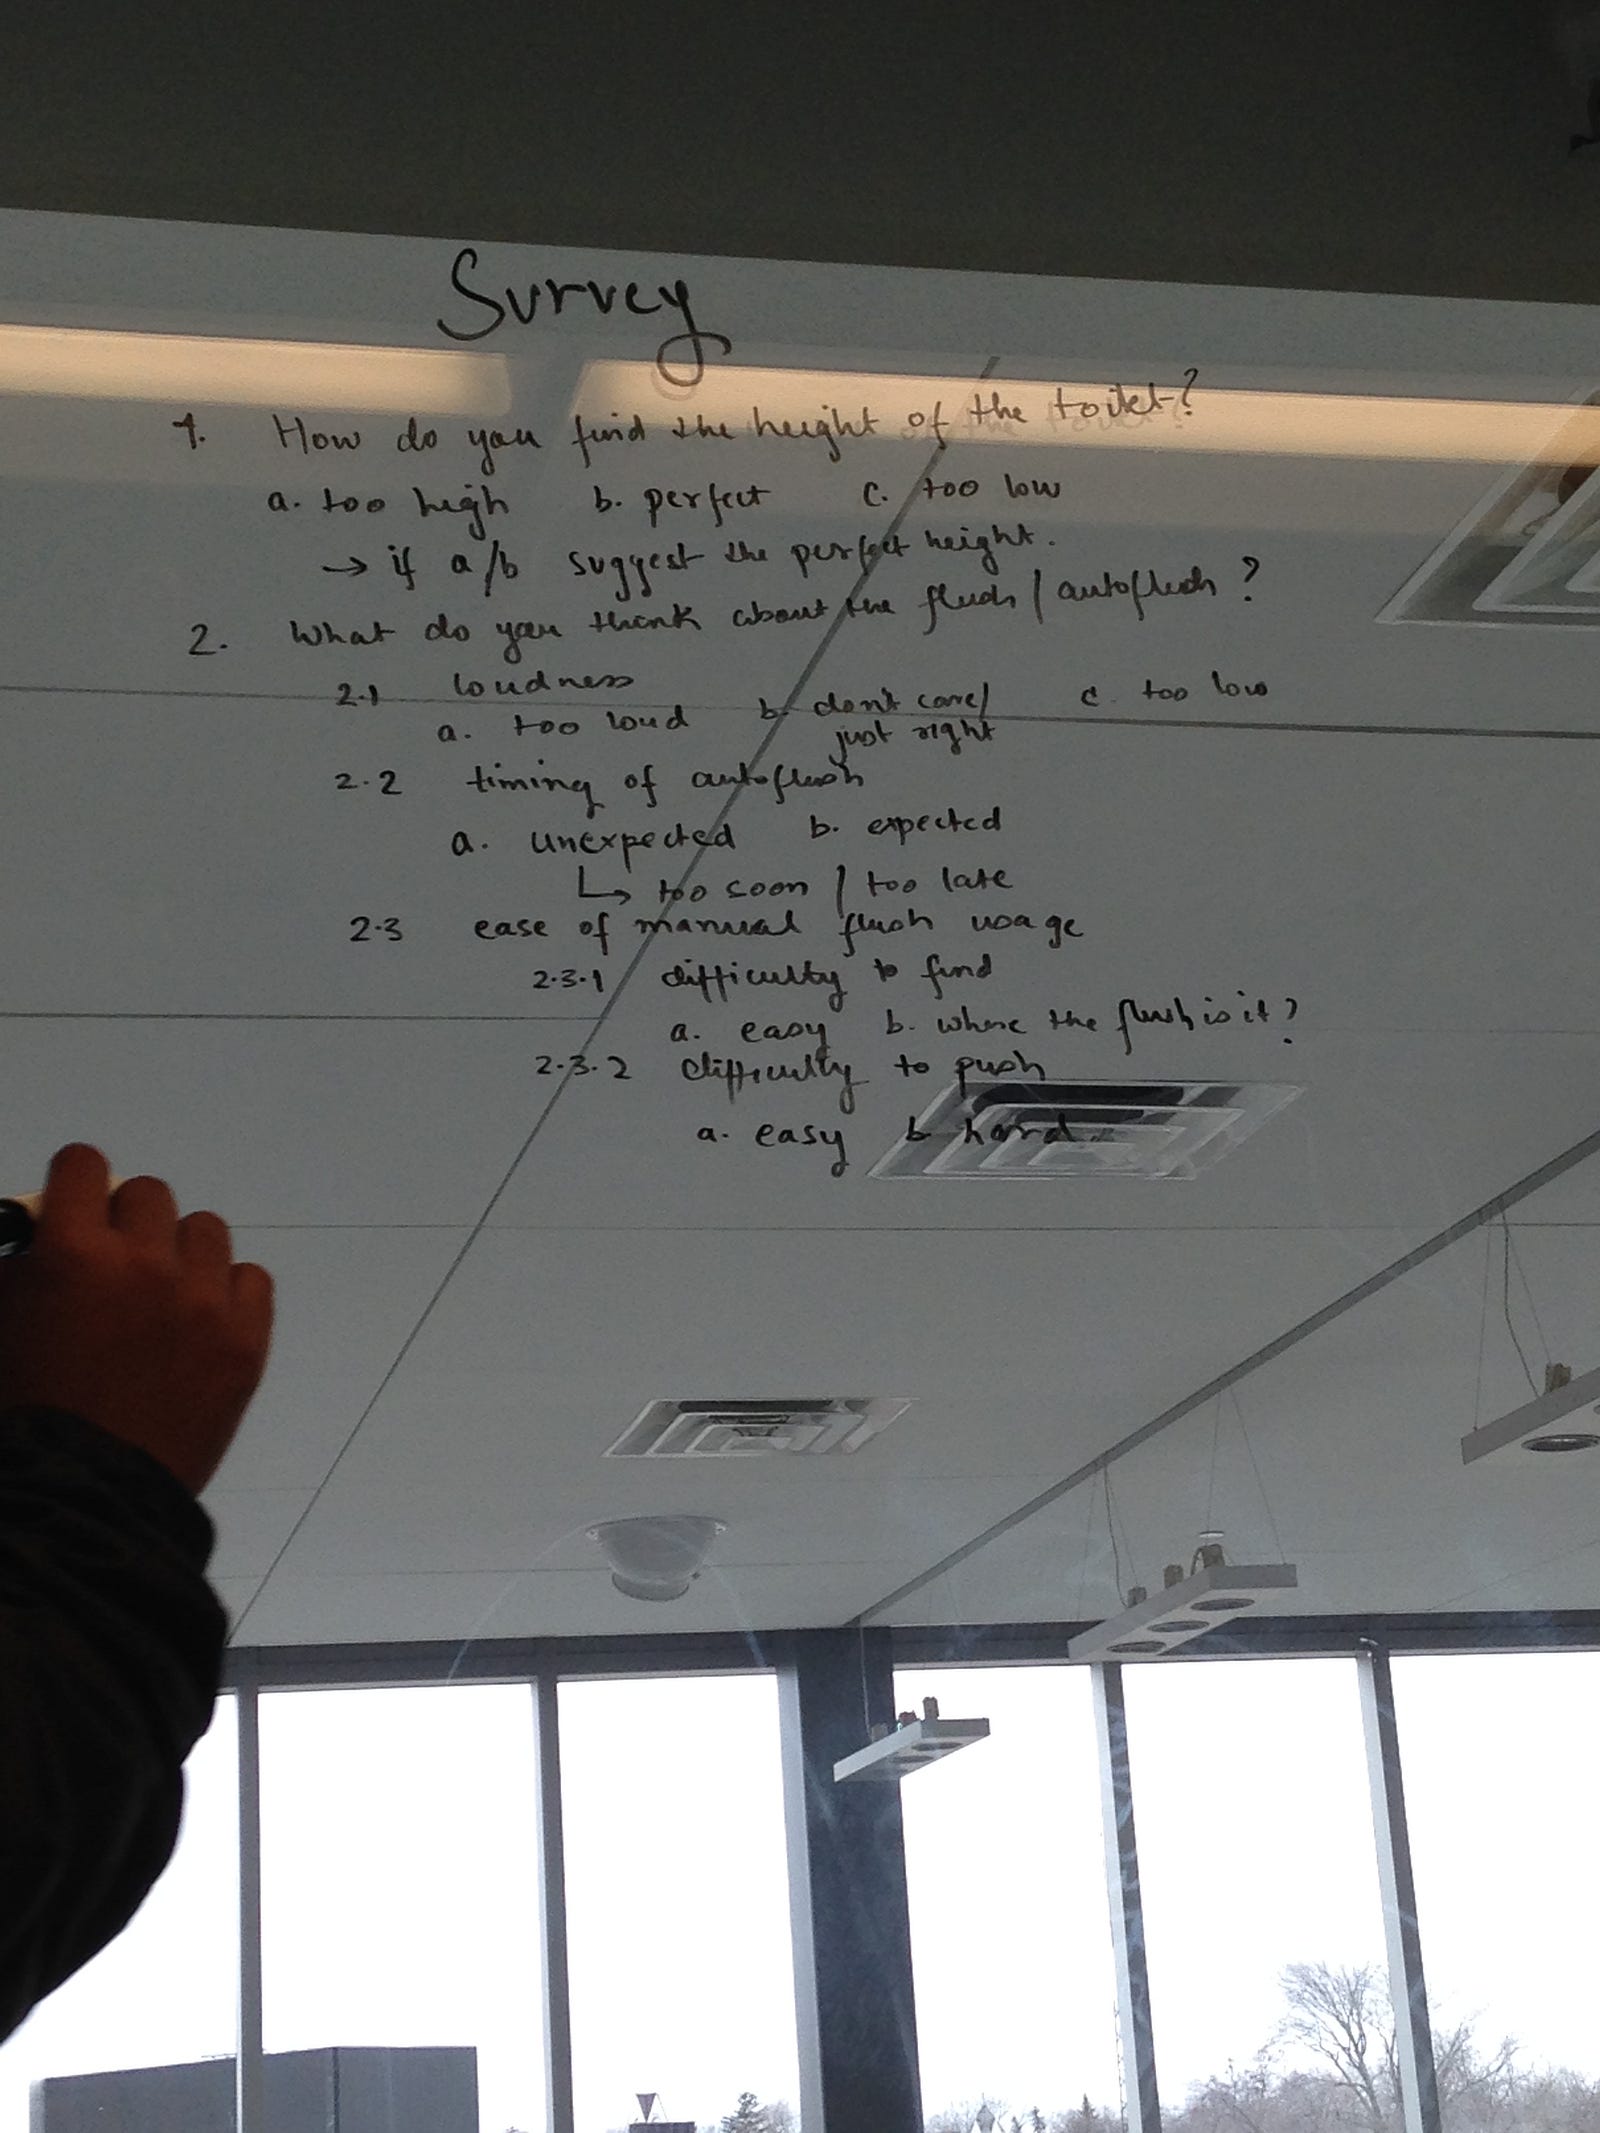 Survey
1. How do you find the height of the toilet?
a. too high b. perfect c. too low
→ if a/b suggest the perfect height.
2. What do you think about the flush / autoflush ?
2.1 loudness
a. too loud b. don't care/ c. too low
just right
2.2 timing of autoflush
a. unexpected b. expected
↳ too soon / too late
2.3 ease of manual flush usage
2.3.1 difficulty to find
a. easy b. where the flush is it?
2.3.2 difficulty to push
a. easy b hard.